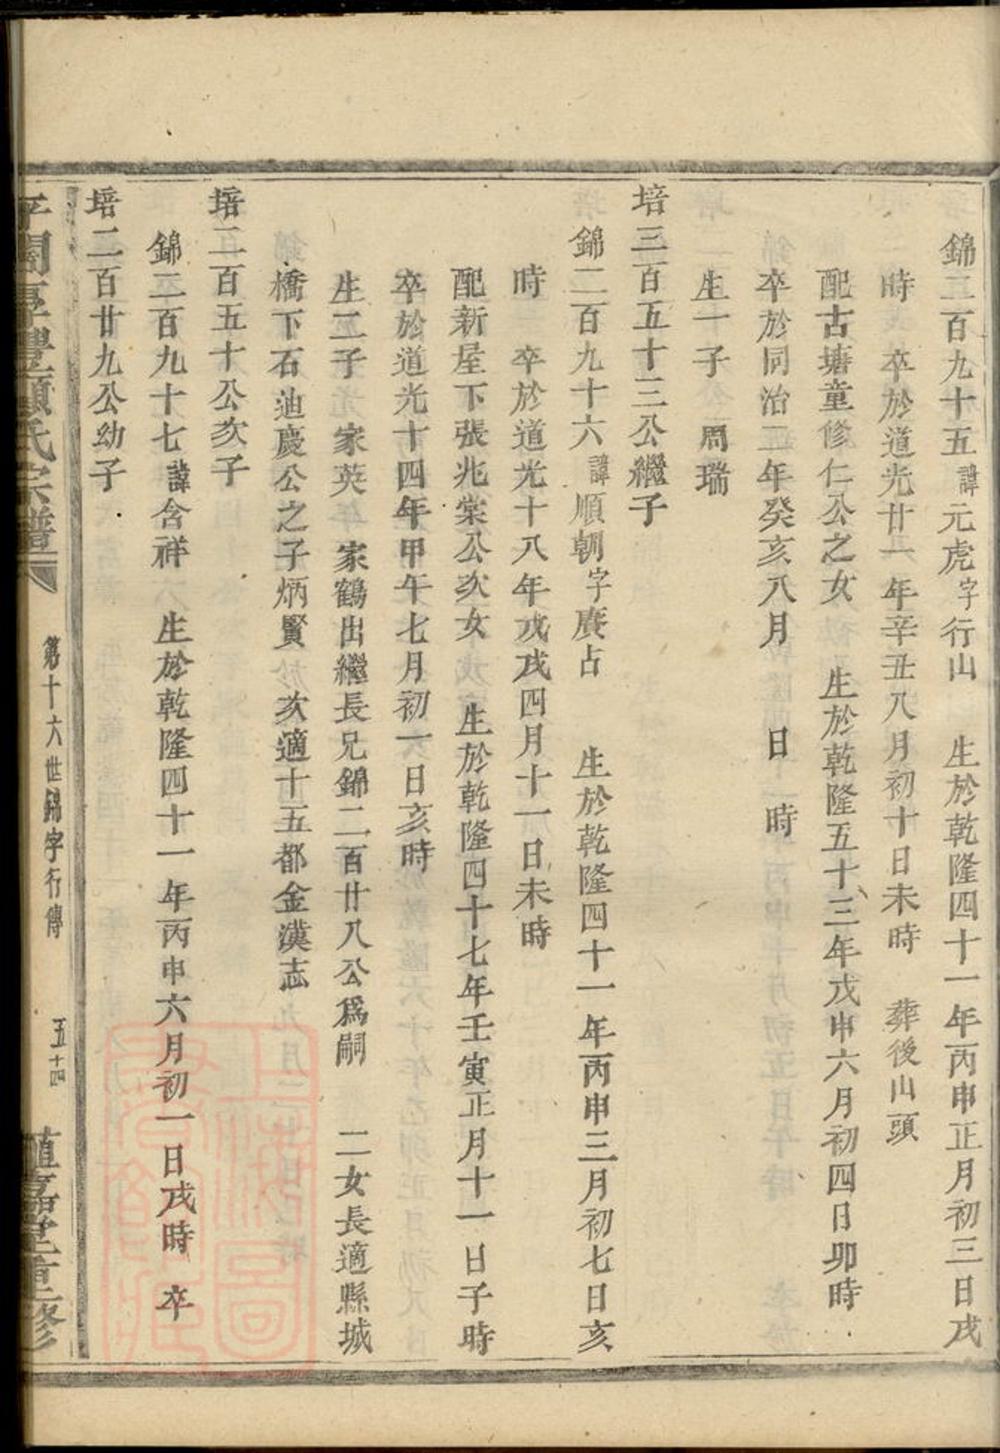 錦二百九十五諱元虎字行山　生於乾隆四十一年丙申正月初三日戌
時　卒於道光廿一年辛丑八月初十日未時　葬後山頭
配古塘童修仁公之女　生於乾隆五十三年戊申六月初四日卯時
卒於同治二年癸亥八月　日　時
生一子　周瑞
培三百五十三公繼子
錦二百九十六諱順朝字廣占　生於乾隆四十一年丙申三月初七日亥
時　卒於道光十八年戊戌四月十一日未時
配新屋下張兆棠公次女　生於乾隆四十七年壬寅正月十一日子時
卒於道光十四年甲午七月初一日亥時
生二子　家英　家鶴出繼長兄錦二百廿八公爲嗣　二女長適縣城
橋下石迪慶公之子炳賢　次適十五都金漢志
培二百五十公次子
錦二百九十七諱含祥　生於乾隆四十一年丙申六月初一日戌時　卒
培二百廿九公幼子
氏宗譜
第十六世錦字行傳
五十四
堂重修